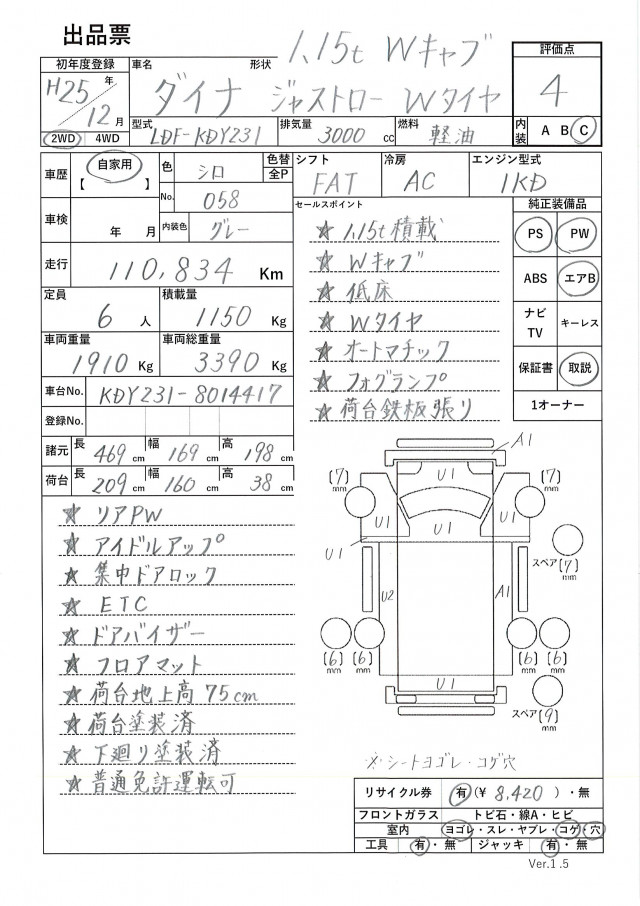 出品票
1.15t Wキャブ
初年度登録
H25年
12月
2WD 4WD
車名 形状
ダイナ ジャストロー Wタイヤ
型式 LDF-KDY231
排気量 3000 cc
燃料 軽油
評価点
4
内装 A B C
車歴 自家用
【 】
色 シロ
No. 058
色替
全P
シフト FAT
冷房 AC
エンジン型式 1KD
車検 年 月
内装色 グレー
走行 110,834 Km
定員 6 人
積載量 1150 Kg
車両重量 1910 Kg
車両総重量 3390 Kg
車台No. KDY231-8014417
登録No.
諸元 長 469 cm 幅 169 cm 高 198 cm
荷台 長 209 cm 幅 160 cm 高 38 cm
セールスポイント
★ 1.15t積載
★ Wキャブ
★ 低床
★ Wタイヤ
★ オートマチック
★ フォグランプ
★ 荷台鉄板張り
純正装備品
PS PW
ABS エアB
ナビ
TV キーレス
保証書 取説
1オーナー
★ リアPW
★ アイドルアップ
★ 集中ドアロック
★ ETC
★ ドアバイザー
★ フロアマット
★ 荷台地上高75cm
★ 荷台塗装済
★ 下廻り塗装済
★ 普通免許運転可
A1
(7) mm
U1
(7) mm
U1 U1 U1
U1
スペア(7) mm
U2 A1
(6) mm (6) mm
(6) mm (6) mm
U1
スペア(9) mm
シートヨゴレ・コゲ穴
リサイクル券 有(¥ 8,420 )・無
フロントガラス トビ石・線A・ヒビ
室内 ヨゴレ・スレ・ヤブレ・コゲ・穴
工具 有・無 ジャッキ 有・無
Ver.1.5